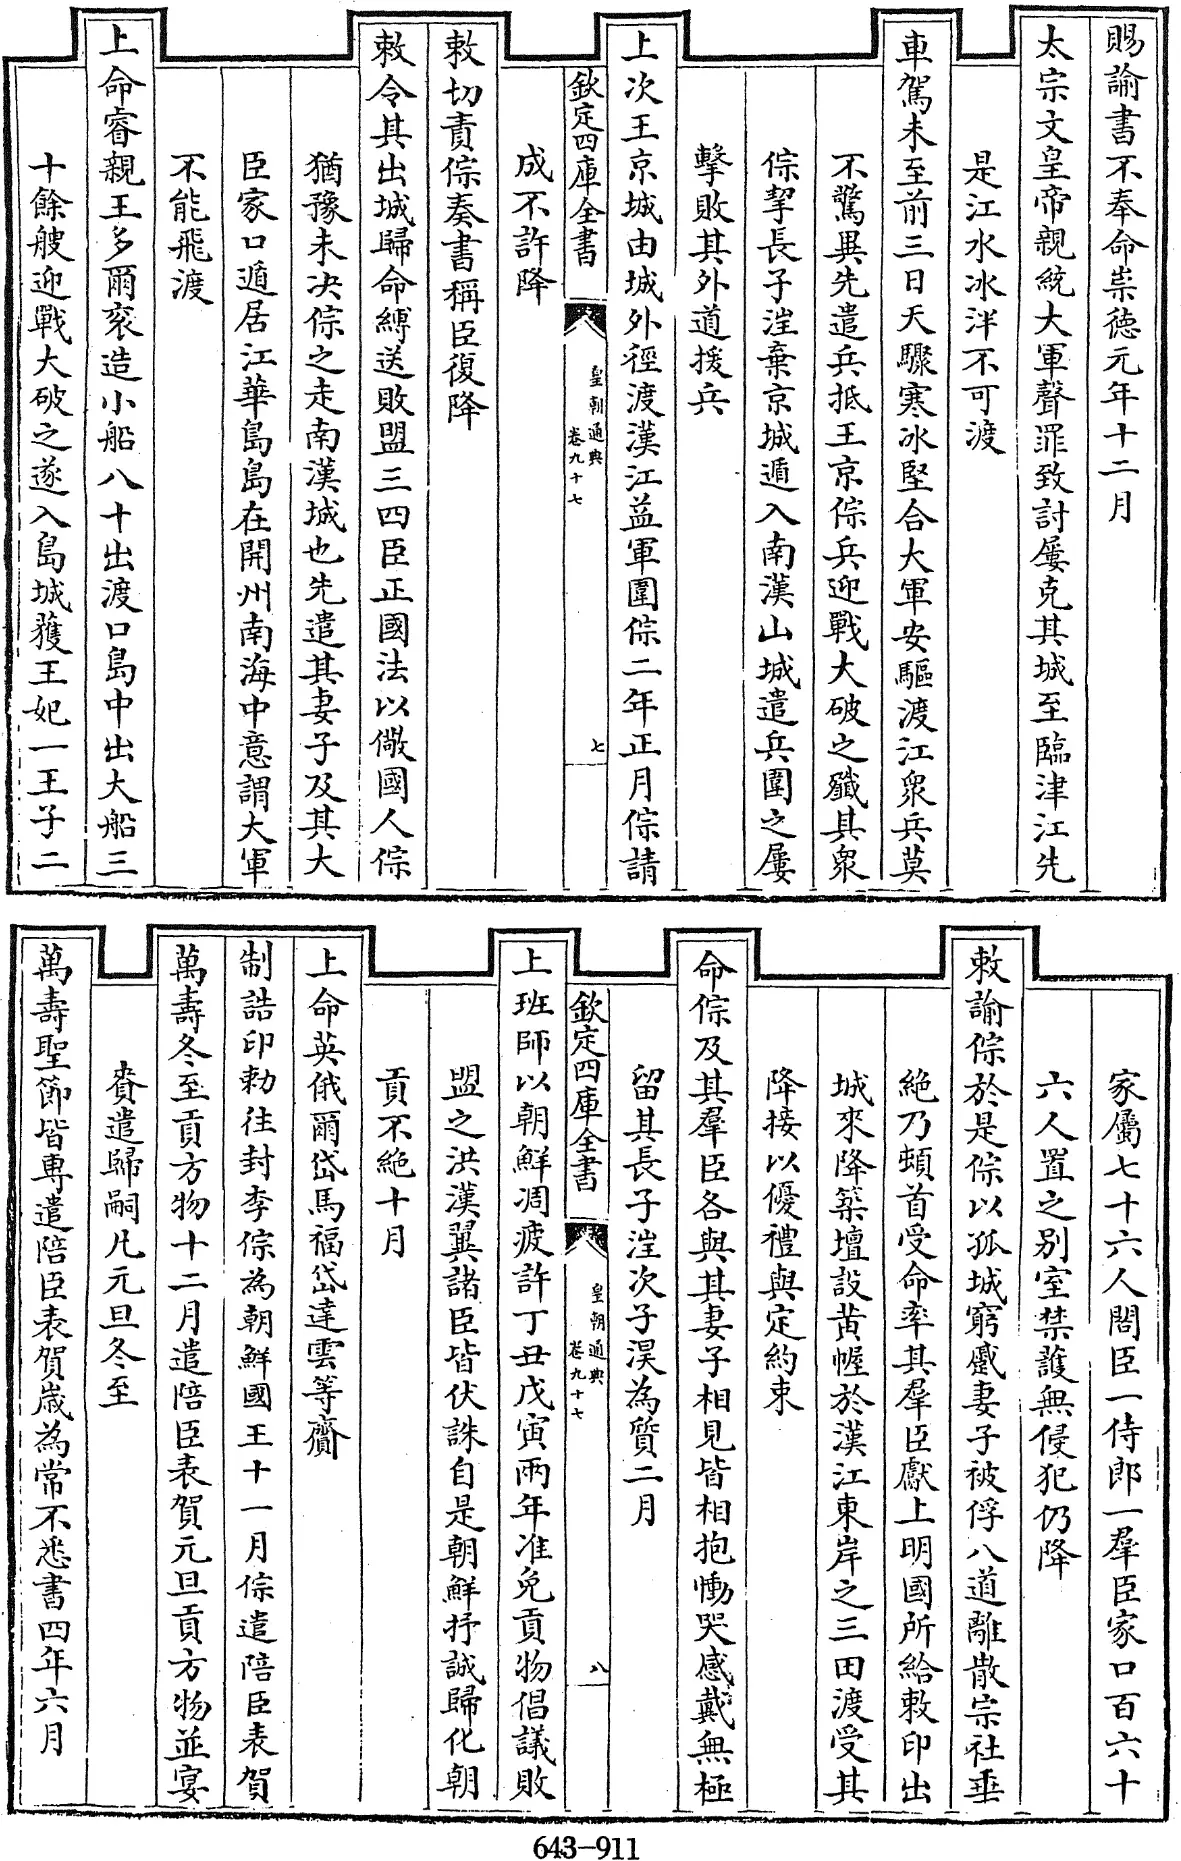 賜諭書不奉命崇德元年十二月
太宗文皇帝親統大軍聲罪致討屢克其城至臨津江先
是江水冰泮不可渡
車駕未至前三日天驟寒冰堅合大軍安驅渡江衆兵莫
不驚異先遣兵抵王京倧兵迎戰大破之殲其衆
倧挈長子𣵀棄京城遁入南漢山城遣兵圍之屢
擊敗其外道援兵
上次王京城由城外徑渡漢江益軍圍倧二年正月倧請
欽定四庫全書
皇朝通典
卷九十七
七
成不許降
敕切責倧奏書稱臣復降
敕令其出城歸命縛送敗盟三四臣正國法以儆國人倧
猶豫未決倧之走南漢城也先遣其妻子及其大
臣家口遁居江華島島在開州南海中意謂大軍
不能飛渡
上命睿親王多爾袞造小船八十出渡口島中出大船三
十餘艘迎戰大破之遂入島城獲王妃一王子二
家屬七十六人閣臣一侍郎一羣臣家口百六十
六人置之別室禁護無侵犯仍降
敕諭倧於是倧以孤城窮蹙妻子被俘八道離散宗社垂
絶乃頓首受命率其羣臣獻上明國所給敕印出
城來降築壇設黄幄於漢江東岸之三田渡受其
降接以優禮與定約束
命倧及其羣臣各與其妻子相見皆相抱慟哭感戴無極
留其長子𣵀次子淏為質二月
上班師以朝鮮凋疲許丁丑戊寅兩年准免貢物倡議敗
欽定四庫全書
皇朝通典
卷九十七
八
盟之洪漢翼諸臣皆伏誅自是朝鮮抒誠歸化朝
貢不絶十月
上命英俄爾岱馬福岱達雲等齎
制誥印勅往封李倧為朝鮮國王十一月倧遣陪臣表賀
萬壽冬至貢方物十二月遣陪臣表賀元旦貢方物並宴
賚遣歸嗣凡元旦冬至
萬壽聖節皆專遣陪臣表賀歲為常不悉書四年六月
643-911